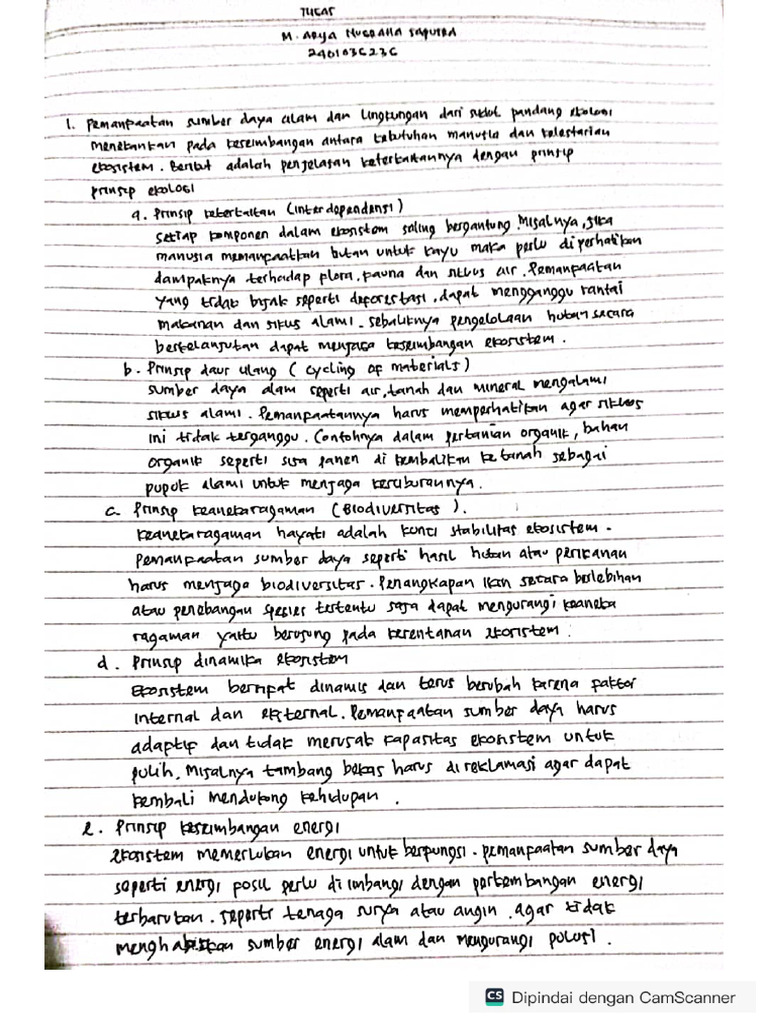 TUGAS
M. ARYA NUGRAHA SAPUTRA
240103C23C
1. Pemanfaatan sumber daya alam dan Lingkungan dari sudut pandang ekologi
menekankan pada keseimbangan antara kebutuhan manusia dan kelestarian
ekosistem. Berikut adalah penjelasan keterkaitannya dengan prinsip
prinsip ekologi
a. Prinsip keterkaitan (interdependensi)
setiap komponen dalam ekosistem saling bergantung. Misalnya, jika
manusia memanfaatkan hutan untuk kayu maka perlu diperhatikan
dampaknya terhadap flora, fauna dan siklus air. Pemanfaatan
yang tidak bijak seperti deforestasi, dapat mengganggu rantai
makanan dan sikus alami. sebaliknya pengelolaan hutan secara
berkelanjutan dapat menjaga keseimbangan ekosistem.
b. Prinsip daur ulang (cycling of materials)
sumber daya alam seperti air, tanah dan mineral mengalami
siklus alami. Pemanfaatannya harus memperhatikan agar siklus
ini tidak terganggu. Contohnya dalam pertanian organik, bahan
organik seperti sisa panen di kembalikan ke tanah sebagai
pupuk alami untuk menjaga kesuburannya.
c. Prinsip keanekaragaman (Biodiversitas).
keanekaragaman hayati adalah kunci stabilitas ekosistem.
Pemanfaatan sumber daya seperti hasil hutan atau perikanan
harus menjaga biodiversitas. Penangkapan ikan secara berlebihan
atau penebangan spesies tertentu saja dapat mengurangi keaneka
ragaman yaitu berujung pada kerentanan ekosistem.
d. Prinsip dinamika ekosistem
Ekosistem bersifat dinamis dan terus berubah karena faktor
internal dan eksternal. Pemanfaatan sumber daya harus
adaptif dan tidak merusak kapasitas ekosistem untuk
pulih, Misalnya tambang bekas harus di reklamasi agar dapat
kembali mendukung kehidupan.
e. Prinsip keseimbangan energi
ekosistem memerlukan energi untuk berfungsi. pemanfaatan sumber daya
seperti energi fosil perlu diimbangi dengan perkembangan energi
terbarukan. seperti tenaga surya atau angin. agar tidak
menghabiskan sumber energi alam dan mengurangi polusi.
CS Dipindai dengan CamScanner